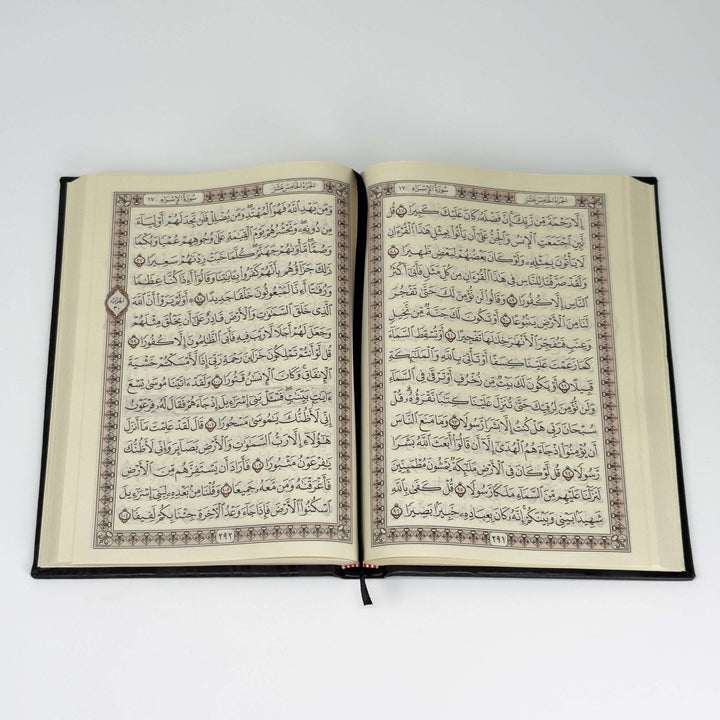 الجُزْءُ الخَامِسَ عَشَرَ سُورَةُ الإِسْرَاءِ ١٧
إِلَّا رَحْمَةً مِّن رَّبِّكَ إِنَّ فَضْلَهُۥ كَانَ عَلَيْكَ كَبِيرًا ٨٧ قُل
لَّئِنِ ٱجْتَمَعَتِ ٱلْإِنسُ وَٱلْجِنُّ عَلَىٰٓ أَن يَأْتُوا۟ بِمِثْلِ هَٰذَا ٱلْقُرْءَانِ
لَا يَأْتُونَ بِمِثْلِهِۦ وَلَوْ كَانَ بَعْضُهُمْ لِبَعْضٍ ظَهِيرًا ٨٨
وَلَقَدْ صَرَّفْنَا لِلنَّاسِ فِى هَٰذَا ٱلْقُرْءَانِ مِن كُلِّ مَثَلٍ فَأَبَىٰٓ أَكْثَرُ
ٱلنَّاسِ إِلَّا كُفُورًا ٨٩ وَقَالُوا۟ لَن نُّؤْمِنَ لَكَ حَتَّىٰ تَفْجُرَ
لَنَا مِنَ ٱلْأَرْضِ يَنۢبُوعًا ٩٠ أَوْ تَكُونَ لَكَ جَنَّةٌ مِّن نَّخِيلٍ
وَعِنَبٍ فَتُفَجِّرَ ٱلْأَنْهَٰرَ خِلَٰلَهَا تَفْجِيرًا ٩١ أَوْ تُسْقِطَ ٱلسَّمَآءَ
كَمَا زَعَمْتَ عَلَيْنَا كِسَفًا أَوْ تَأْتِىَ بِٱللَّهِ وَٱلْمَلَٰٓئِكَةِ
قَبِيلًا ٩٢ أَوْ يَكُونَ لَكَ بَيْتٌ مِّن زُخْرُفٍ أَوْ تَرْقَىٰ فِى ٱلسَّمَآءِ
وَلَن نُّؤْمِنَ لِرُقِيِّكَ حَتَّىٰ تُنَزِّلَ عَلَيْنَا كِتَٰبًا نَّقْرَؤُهُۥ قُلْ
سُبْحَانَ رَبِّى هَلْ كُنتُ إِلَّا بَشَرًا رَّسُولًا ٩٣ وَمَا مَنَعَ ٱلنَّاسَ
أَن يُؤْمِنُوٓا۟ إِذْ جَآءَهُمُ ٱلْهُدَىٰٓ إِلَّآ أَن قَالُوٓا۟ أَبَعَثَ ٱللَّهُ بَشَرًا
رَّسُولًا ٩٤ قُل لَّوْ كَانَ فِى ٱلْأَرْضِ مَلَٰٓئِكَةٌ يَمْشُونَ مُطْمَئِنِّينَ
لَنَزَّلْنَا عَلَيْهِم مِّنَ ٱلسَّمَآءِ مَلَكًا رَّسُولًا ٩٥ قُلْ كَفَىٰ بِٱللَّهِ
شَهِيدًۢا بَيْنِى وَبَيْنَكُمْ إِنَّهُۥ كَانَ بِعِبَادِهِۦ خَبِيرًۢا بَصِيرًا ٩٦
٢٩١
الجُزْءُ الخَامِسَ عَشَرَ سُورَةُ الإِسْرَاءِ ١٧
وَمَن يَهْدِ ٱللَّهُ فَهُوَ ٱلْمُهْتَدِ وَمَن يُضْلِلْ فَلَن تَجِدَ لَهُمْ أَوْلِيَآءَ
مِن دُونِهِۦ وَنَحْشُرُهُمْ يَوْمَ ٱلْقِيَٰمَةِ عَلَىٰ وُجُوهِهِمْ عُمْيًا وَبُكْمًا
وَصُمًّا مَّأْوَىٰهُمْ جَهَنَّمُ كُلَّمَا خَبَتْ زِدْنَٰهُمْ سَعِيرًا ٩٧
ذَٰلِكَ جَزَآؤُهُم بِأَنَّهُمْ كَفَرُوا۟ بِـَٔايَٰتِنَا وَقَالُوٓا۟ أَءِذَا كُنَّا عِظَٰمًا
وَرُفَٰتًا أَءِنَّا لَمَبْعُوثُونَ خَلْقًا جَدِيدًا ٩٨ ۞ أَوَلَمْ يَرَوْا۟ أَنَّ ٱللَّهَ
ٱلَّذِى خَلَقَ ٱلسَّمَٰوَٰتِ وَٱلْأَرْضَ قَادِرٌ عَلَىٰٓ أَن يَخْلُقَ مِثْلَهُمْ
وَجَعَلَ لَهُمْ أَجَلًا لَّا رَيْبَ فِيهِ فَأَبَى ٱلظَّٰلِمُونَ إِلَّا كُفُورًا ٩٩
قُل لَّوْ أَنتُمْ تَمْلِكُونَ خَزَآئِنَ رَحْمَةِ رَبِّىٓ إِذًا لَّأَمْسَكْتُمْ خَشْيَةَ
ٱلْإِنفَاقِ وَكَانَ ٱلْإِنسَٰنُ قَتُورًا ١٠٠ وَلَقَدْ ءَاتَيْنَا مُوسَىٰ تِسْعَ
ءَايَٰتٍۭ بَيِّنَٰتٍ فَسْـَٔلْ بَنِىٓ إِسْرَٰٓءِيلَ إِذْ جَآءَهُمْ فَقَالَ لَهُۥ فِرْعَوْنُ
إِنِّى لَأَظُنُّكَ يَٰمُوسَىٰ مَسْحُورًا ١٠١ قَالَ لَقَدْ عَلِمْتَ مَآ أَنزَلَ
هَٰٓؤُلَآءِ إِلَّا رَبُّ ٱلسَّمَٰوَٰتِ وَٱلْأَرْضِ بَصَآئِرَ وَإِنِّى لَأَظُنُّكَ
يَٰفِرْعَوْنُ مَثْبُورًا ١٠٢ فَأَرَادَ أَن يَسْتَفِزَّهُم مِّنَ ٱلْأَرْضِ
فَأَغْرَقْنَٰهُ وَمَن مَّعَهُۥ جَمِيعًا ١٠٣ وَقُلْنَا مِنۢ بَعْدِهِۦ لِبَنِىٓ إِسْرَٰٓءِيلَ
ٱسْكُنُوا۟ ٱلْأَرْضَ فَإِذَا جَآءَ وَعْدُ ٱلْءَاخِرَةِ جِئْنَا بِكُمْ لَفِيفًا ١٠٤
٢٩٢